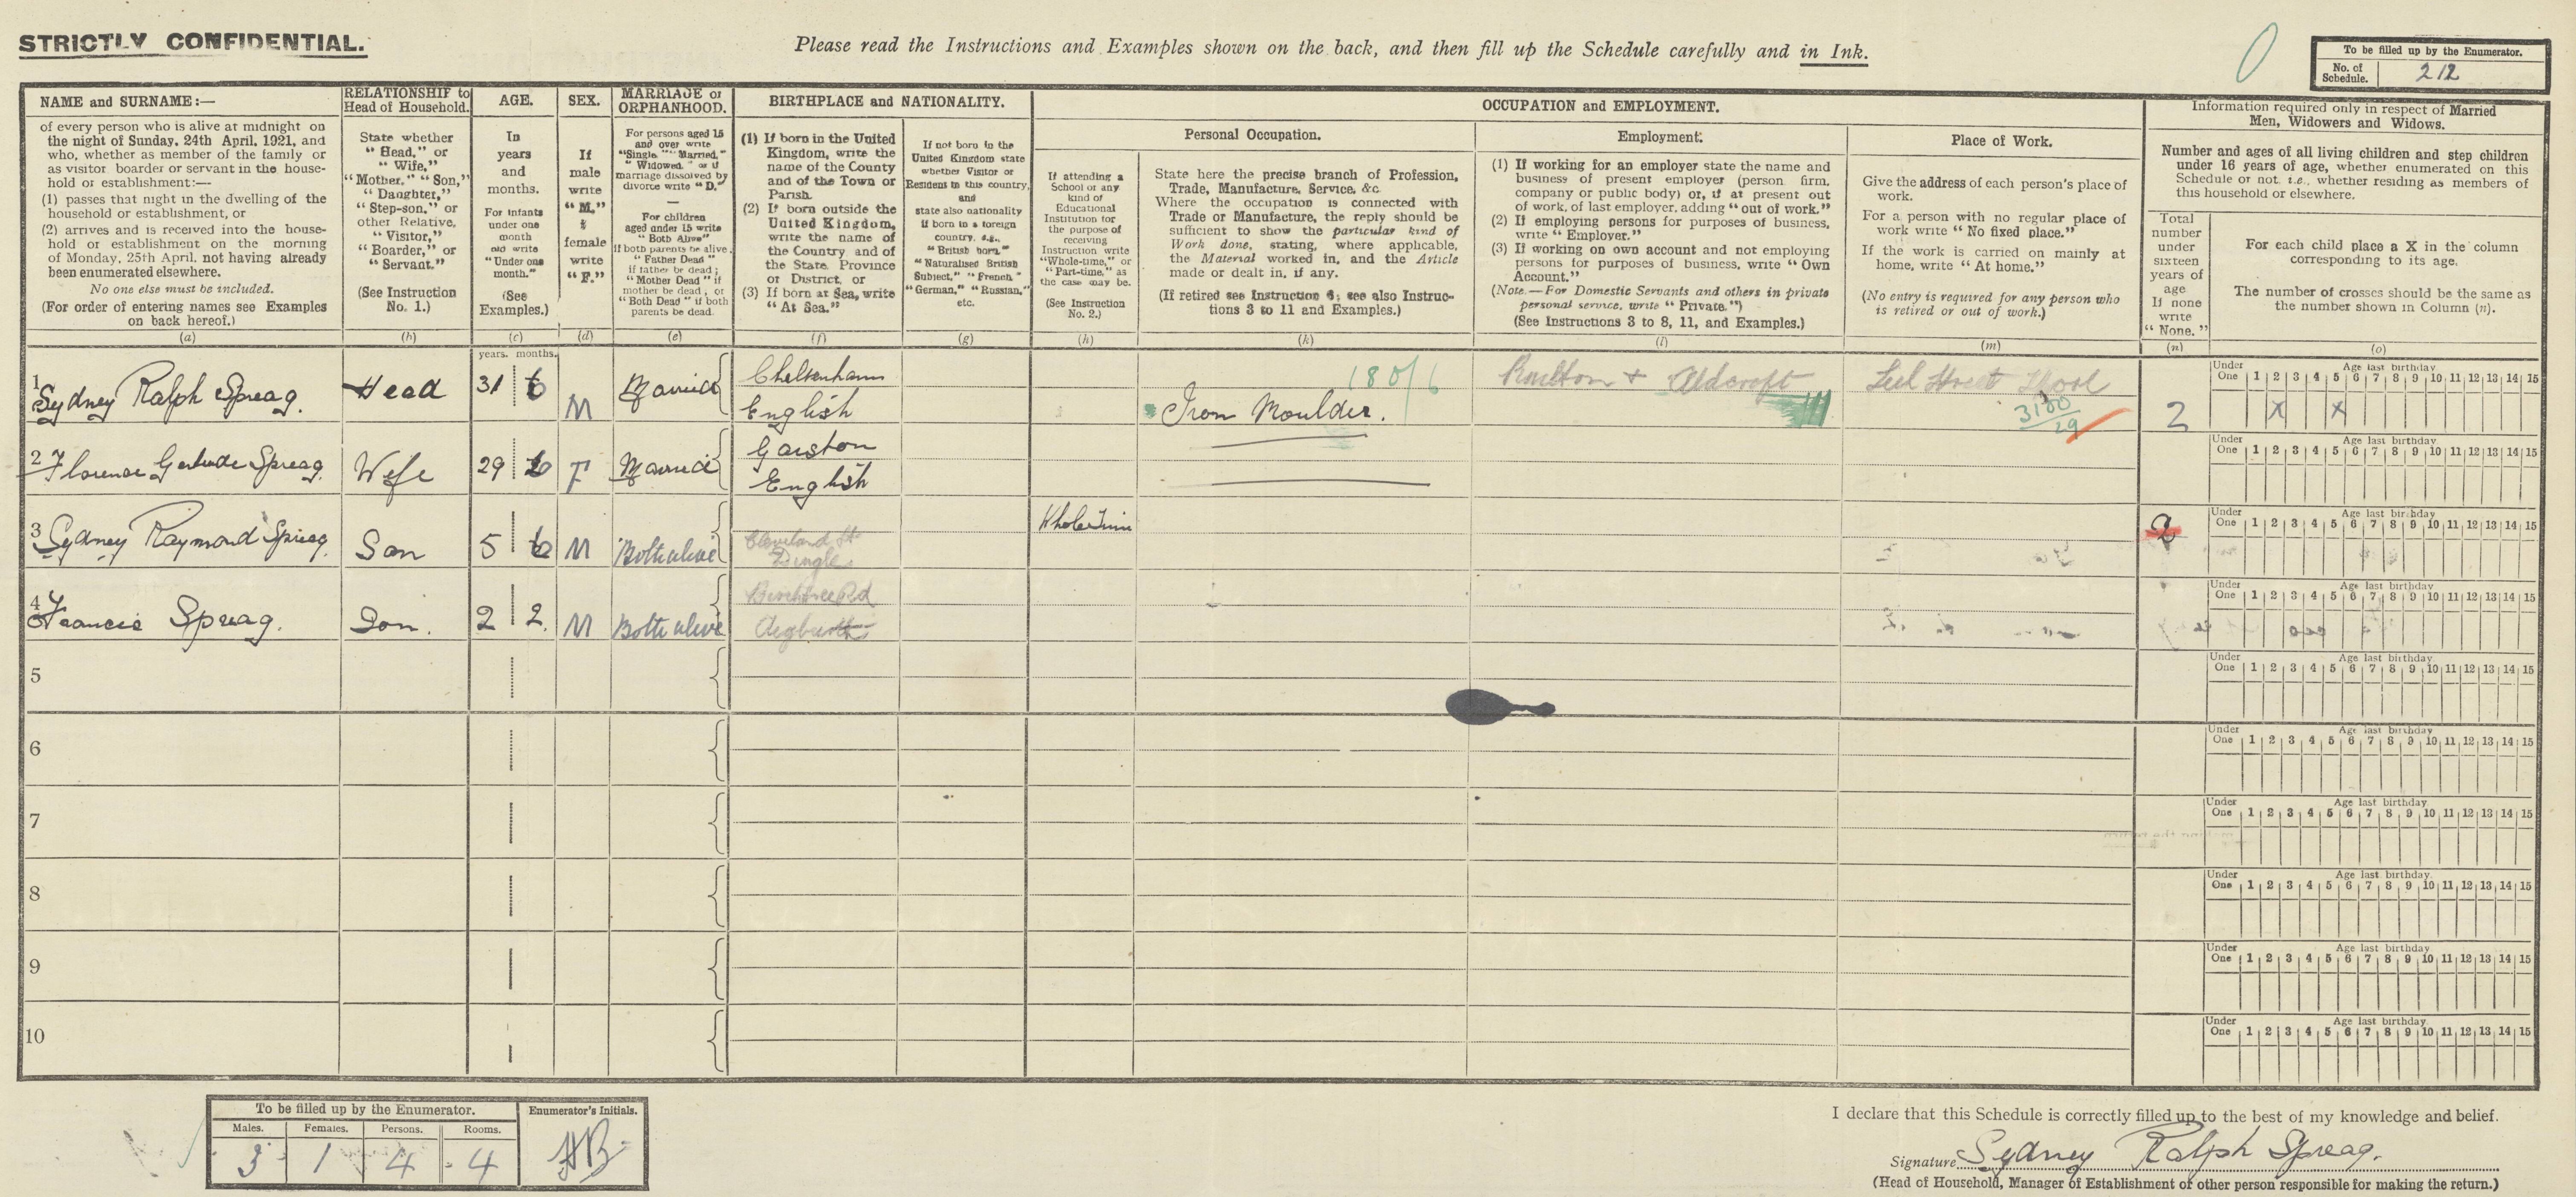 STRICTLY CONFIDENTIAL.
Please read the Instructions and Examples shown on the back, and then fill up the Schedule carefully and in Ink.
To be filled up by the Enumerator.
No. of Schedule. 212
NAME and SURNAME:—
of every person who is alive at midnight on
the night of Sunday, 24th April, 1921, and
who, whether as member of the family or
as visitor boarder or servant in the house-
hold or establishment:—
(1) passes that night in the dwelling of the
household or establishment, or
(2) arrives and is received into the house-
hold or establishment on the morning
of Monday, 25th April, not having already
been enumerated elsewhere.
No one else must be included.
(For order of entering names see Examples
on back hereof.)
(a)
RELATIONSHIP to
Head of Household.
State whether
"Head," or
"Wife,"
"Mother," "Son,"
"Daughter,"
"Step-son," or
other Relative,
"Visitor,"
"Boarder," or
"Servant."
(See Instruction
No. 1.)
(b)
AGE.
In
years
and
months.
For infants
under one
month
old write
"Under one
month."
(See
Examples.)
(c)
SEX.
If
male
write
"M."
female
write
"F."
(d)
MARRIAGE or
ORPHANHOOD.
For persons aged 15
and over write
"Single," "Married,"
"Widowed," or if
marriage dissolved by
divorce write "D."
—
For children
aged under 15 write
"Both Alive"
if both parents be alive.
"Father Dead"
if father be dead;
"Mother Dead" if
mother be dead; or
"Both Dead" if both
parents be dead.
(e)
BIRTHPLACE and NATIONALITY.
(1) If born in the United
Kingdom, write the
name of the County
and of the Town or
Parish.
(2) If born outside the
United Kingdom,
write the name of
the Country and of
the State, Province
or District, or
(3) If born at Sea, write
"At Sea."
(f)
If not born in the
United Kingdom state
whether Visitor or
Resident in this country,
and
state also nationality
if born in a foreign
country, e.g.,
"British born,"
"Naturalised British
Subject," "French,"
"German," "Russian,"
etc.
(g)
OCCUPATION and EMPLOYMENT.
If attending a
School or any
kind of
Educational
Institution for
the purpose of
receiving
Instruction write
"Whole-time," or
"Part-time," as
the case may be.
(See Instruction
No. 2.)
(h)
Personal Occupation.
State here the precise branch of Profession,
Trade, Manufacture, Service, &c.
Where the occupation is connected with
Trade or Manufacture, the reply should be
sufficient to show the particular kind of
Work done, stating, where applicable,
the Material worked in, and the Article
made or dealt in, if any.
(If retired see Instruction 6; see also Instruc-
tions 3 to 11 and Examples.)
(k)
Employment.
(1) If working for an employer state the name and
business of present employer (person firm,
company or public body) or, if at present out
of work, of last employer, adding "out of work."
(2) If employing persons for purposes of business,
write "Employer."
(3) If working on own account and not employing
persons for purposes of business, write "Own
Account."
(Note.—For Domestic Servants and others in private
personal service, write "Private.")
(See Instructions 3 to 8, 11, and Examples.)
(l)
Place of Work.
Give the address of each person's place of
work.
For a person with no regular place of
work write "No fixed place."
If the work is carried on mainly at
home, write "At home."
(No entry is required for any person who
is retired or out of work.)
(m)
Information required only in respect of Married
Men, Widowers and Widows.
Number and ages of all living children and step children
under 16 years of age, whether enumerated on this
Schedule or not, i.e., whether residing as members of
this household or elsewhere.
Total
number
under
sixteen
years of
age
If none
write
"None."
(n)
For each child place a X in the column
corresponding to its age.
The number of crosses should be the same as
the number shown in Column (n).
(o)
years. months.
1 Sydney Ralph Spreag. Head 31 6 M Married Cheltenham English 180/6 Iron Moulder. 3100/29 2 X X
2 Florence Gertrude Spreag. Wife 29 F Married Garston English
3 Sydney Raymond Spreag. Son 5 6 M Both alive Cleveland St Dingle Whole Time 2
4 Francis Spreag. Son. 2 2 M Both alive Birchtree Rd Aigburth
5
6
7
8
9
10
Under One 1 2 3 4 5 6 7 8 9 10 11 12 13 14 15
Age last birthday
Under One 1 2 3 4 5 6 7 8 9 10 11 12 13 14 15
Age last birthday
Under One 1 2 3 4 5 6 7 8 9 10 11 12 13 14 15
Age last birthday
Under One 1 2 3 4 5 6 7 8 9 10 11 12 13 14 15
Age last birthday
Under One 1 2 3 4 5 6 7 8 9 10 11 12 13 14 15
Age last birthday
Under One 1 2 3 4 5 6 7 8 9 10 11 12 13 14 15
Age last birthday
Under One 1 2 3 4 5 6 7 8 9 10 11 12 13 14 15
Age last birthday
Under One 1 2 3 4 5 6 7 8 9 10 11 12 13 14 15
Age last birthday
Under One 1 2 3 4 5 6 7 8 9 10 11 12 13 14 15
Age last birthday
Under One 1 2 3 4 5 6 7 8 9 10 11 12 13 14 15
Age last birthday
To be filled up by the Enumerator.
Males. Females. Persons. Rooms.
3 1 4 4
Enumerator's Initials.
I declare that this Schedule is correctly filled up to the best of my knowledge and belief.
Signature Sydney Ralph Spreag.
(Head of Household, Manager of Establishment or other person responsible for making the return.)